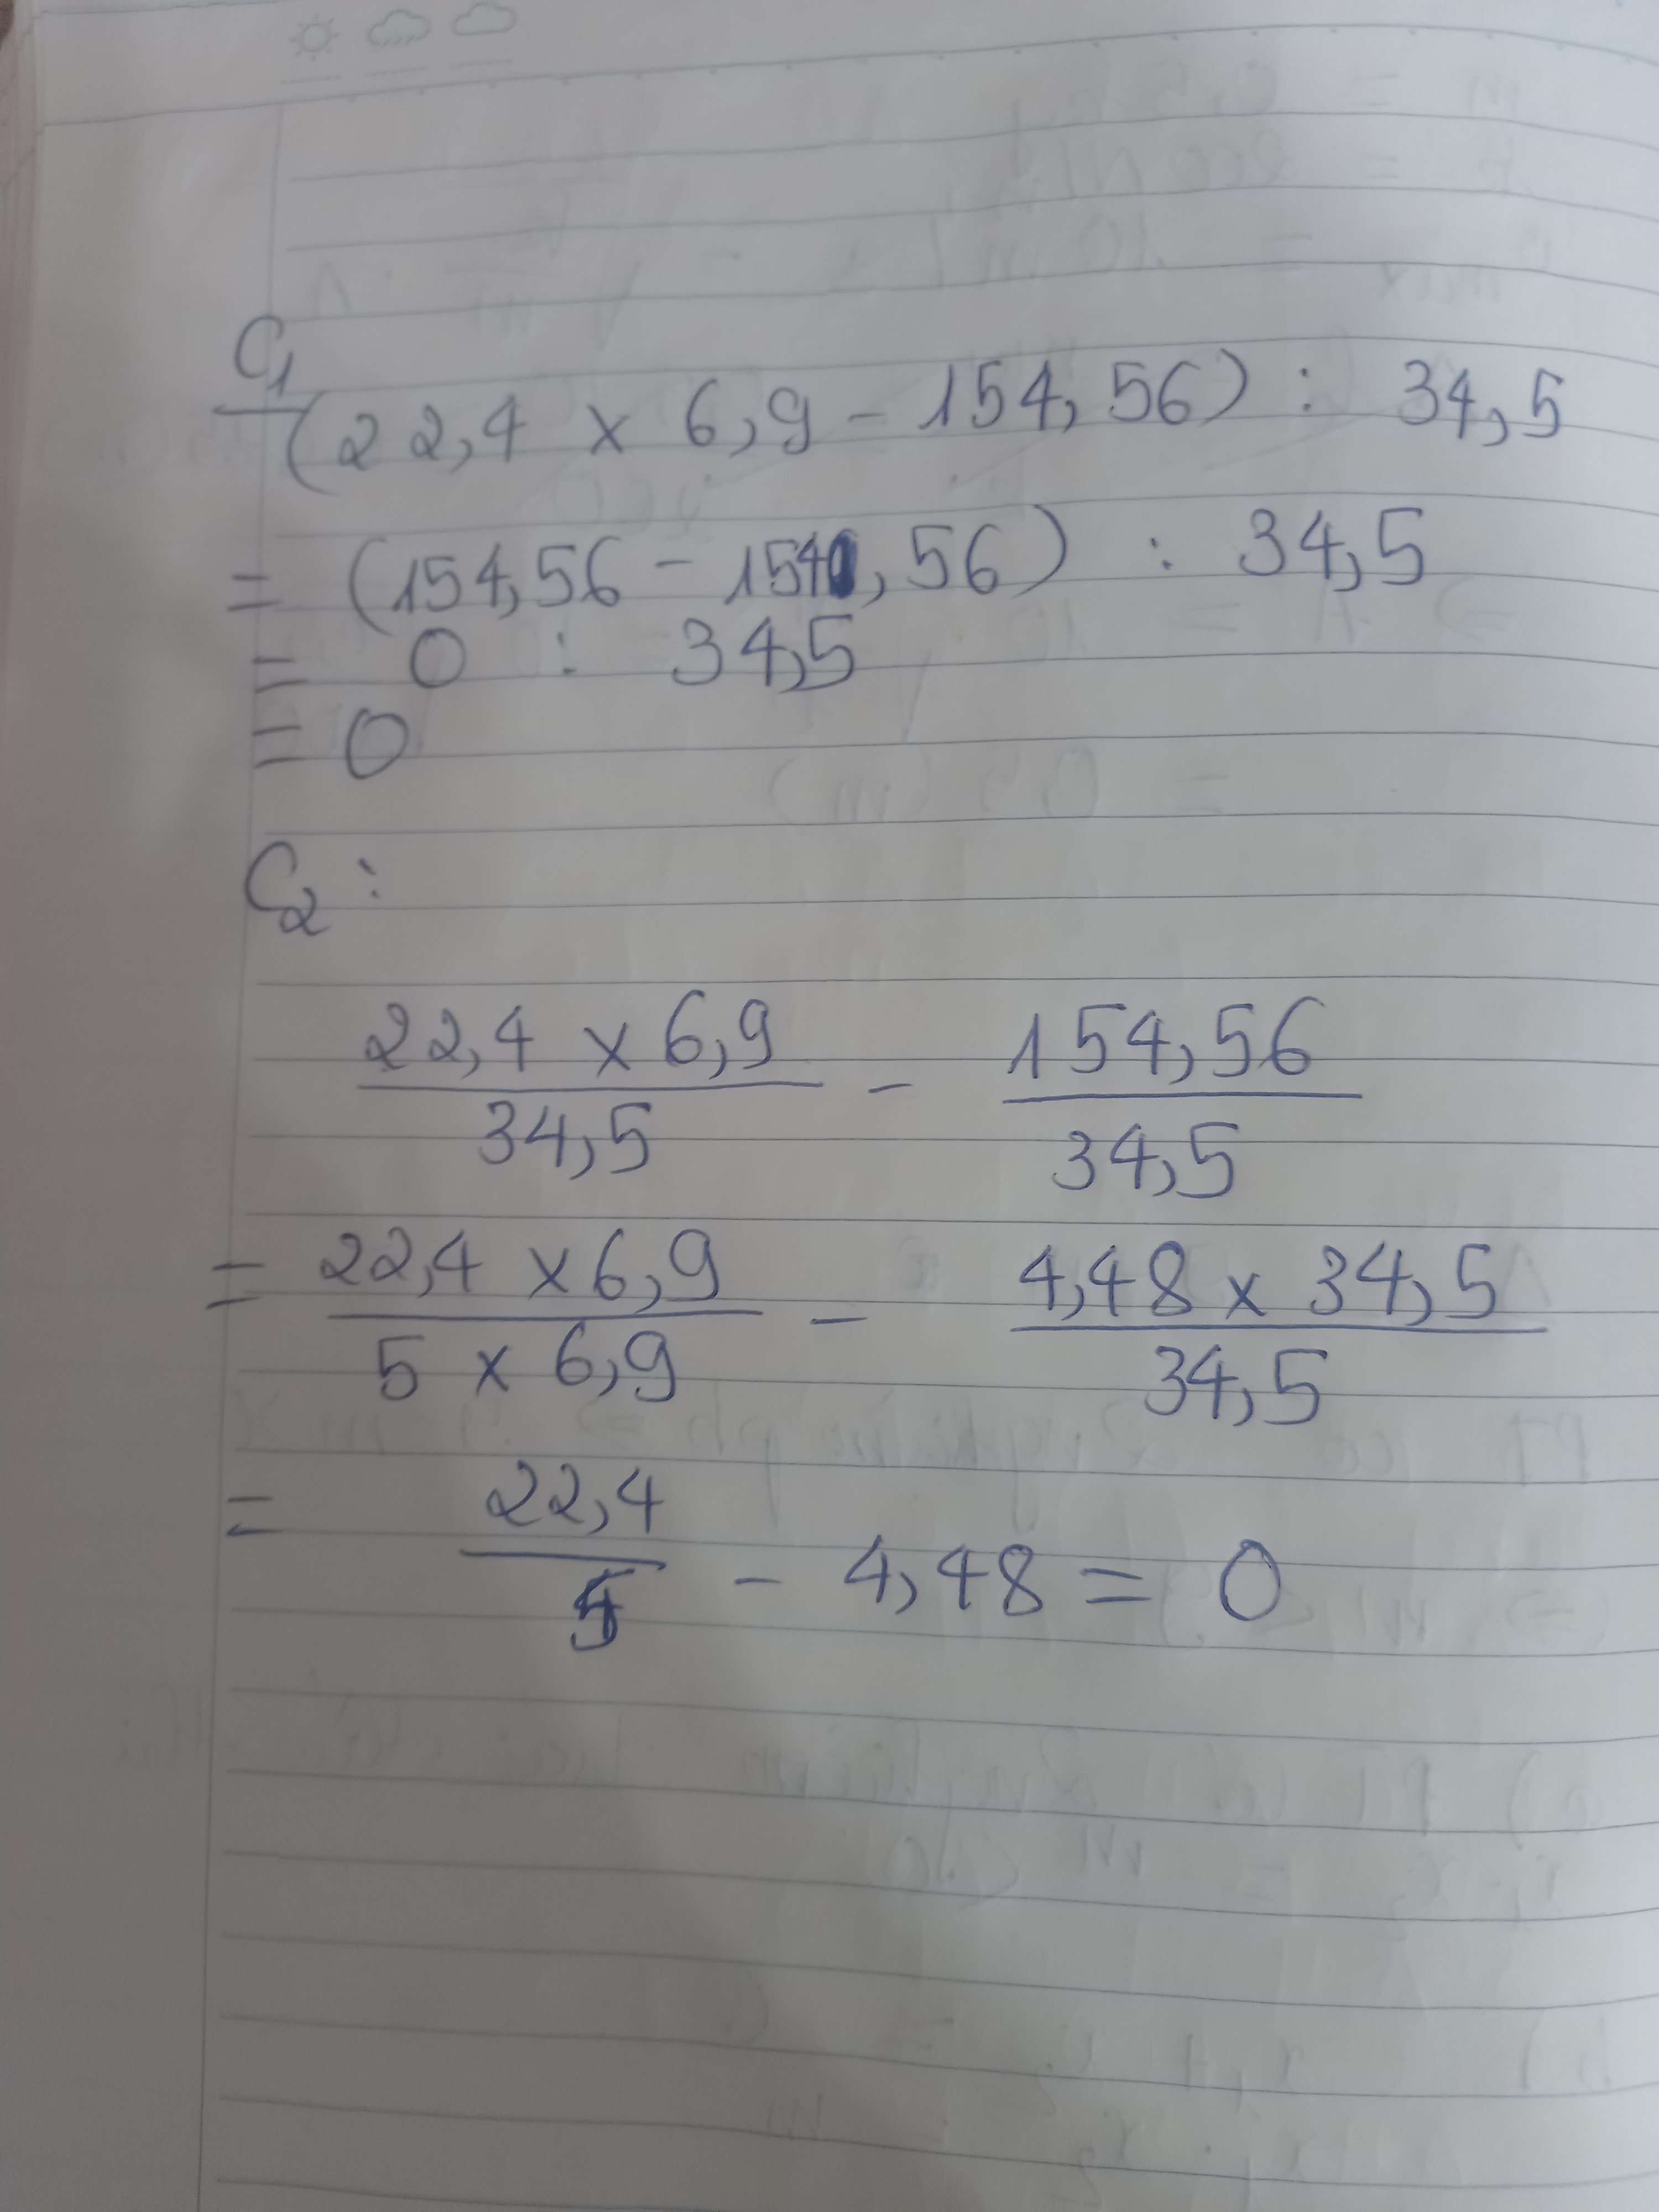 C1
(22,4 x 6,9 - 154,56) : 34,5
= (154,56 - 154,56) : 34,5
= 0 : 34,5
= 0
C2 :
22,4 x 6,9 / 34,5 - 154,56 / 34,5
= 22,4 x 6,9 / 5 x 6,9 - 4,48 x 34,5 / 34,5
= 22,4 / 5 - 4,48 = 0